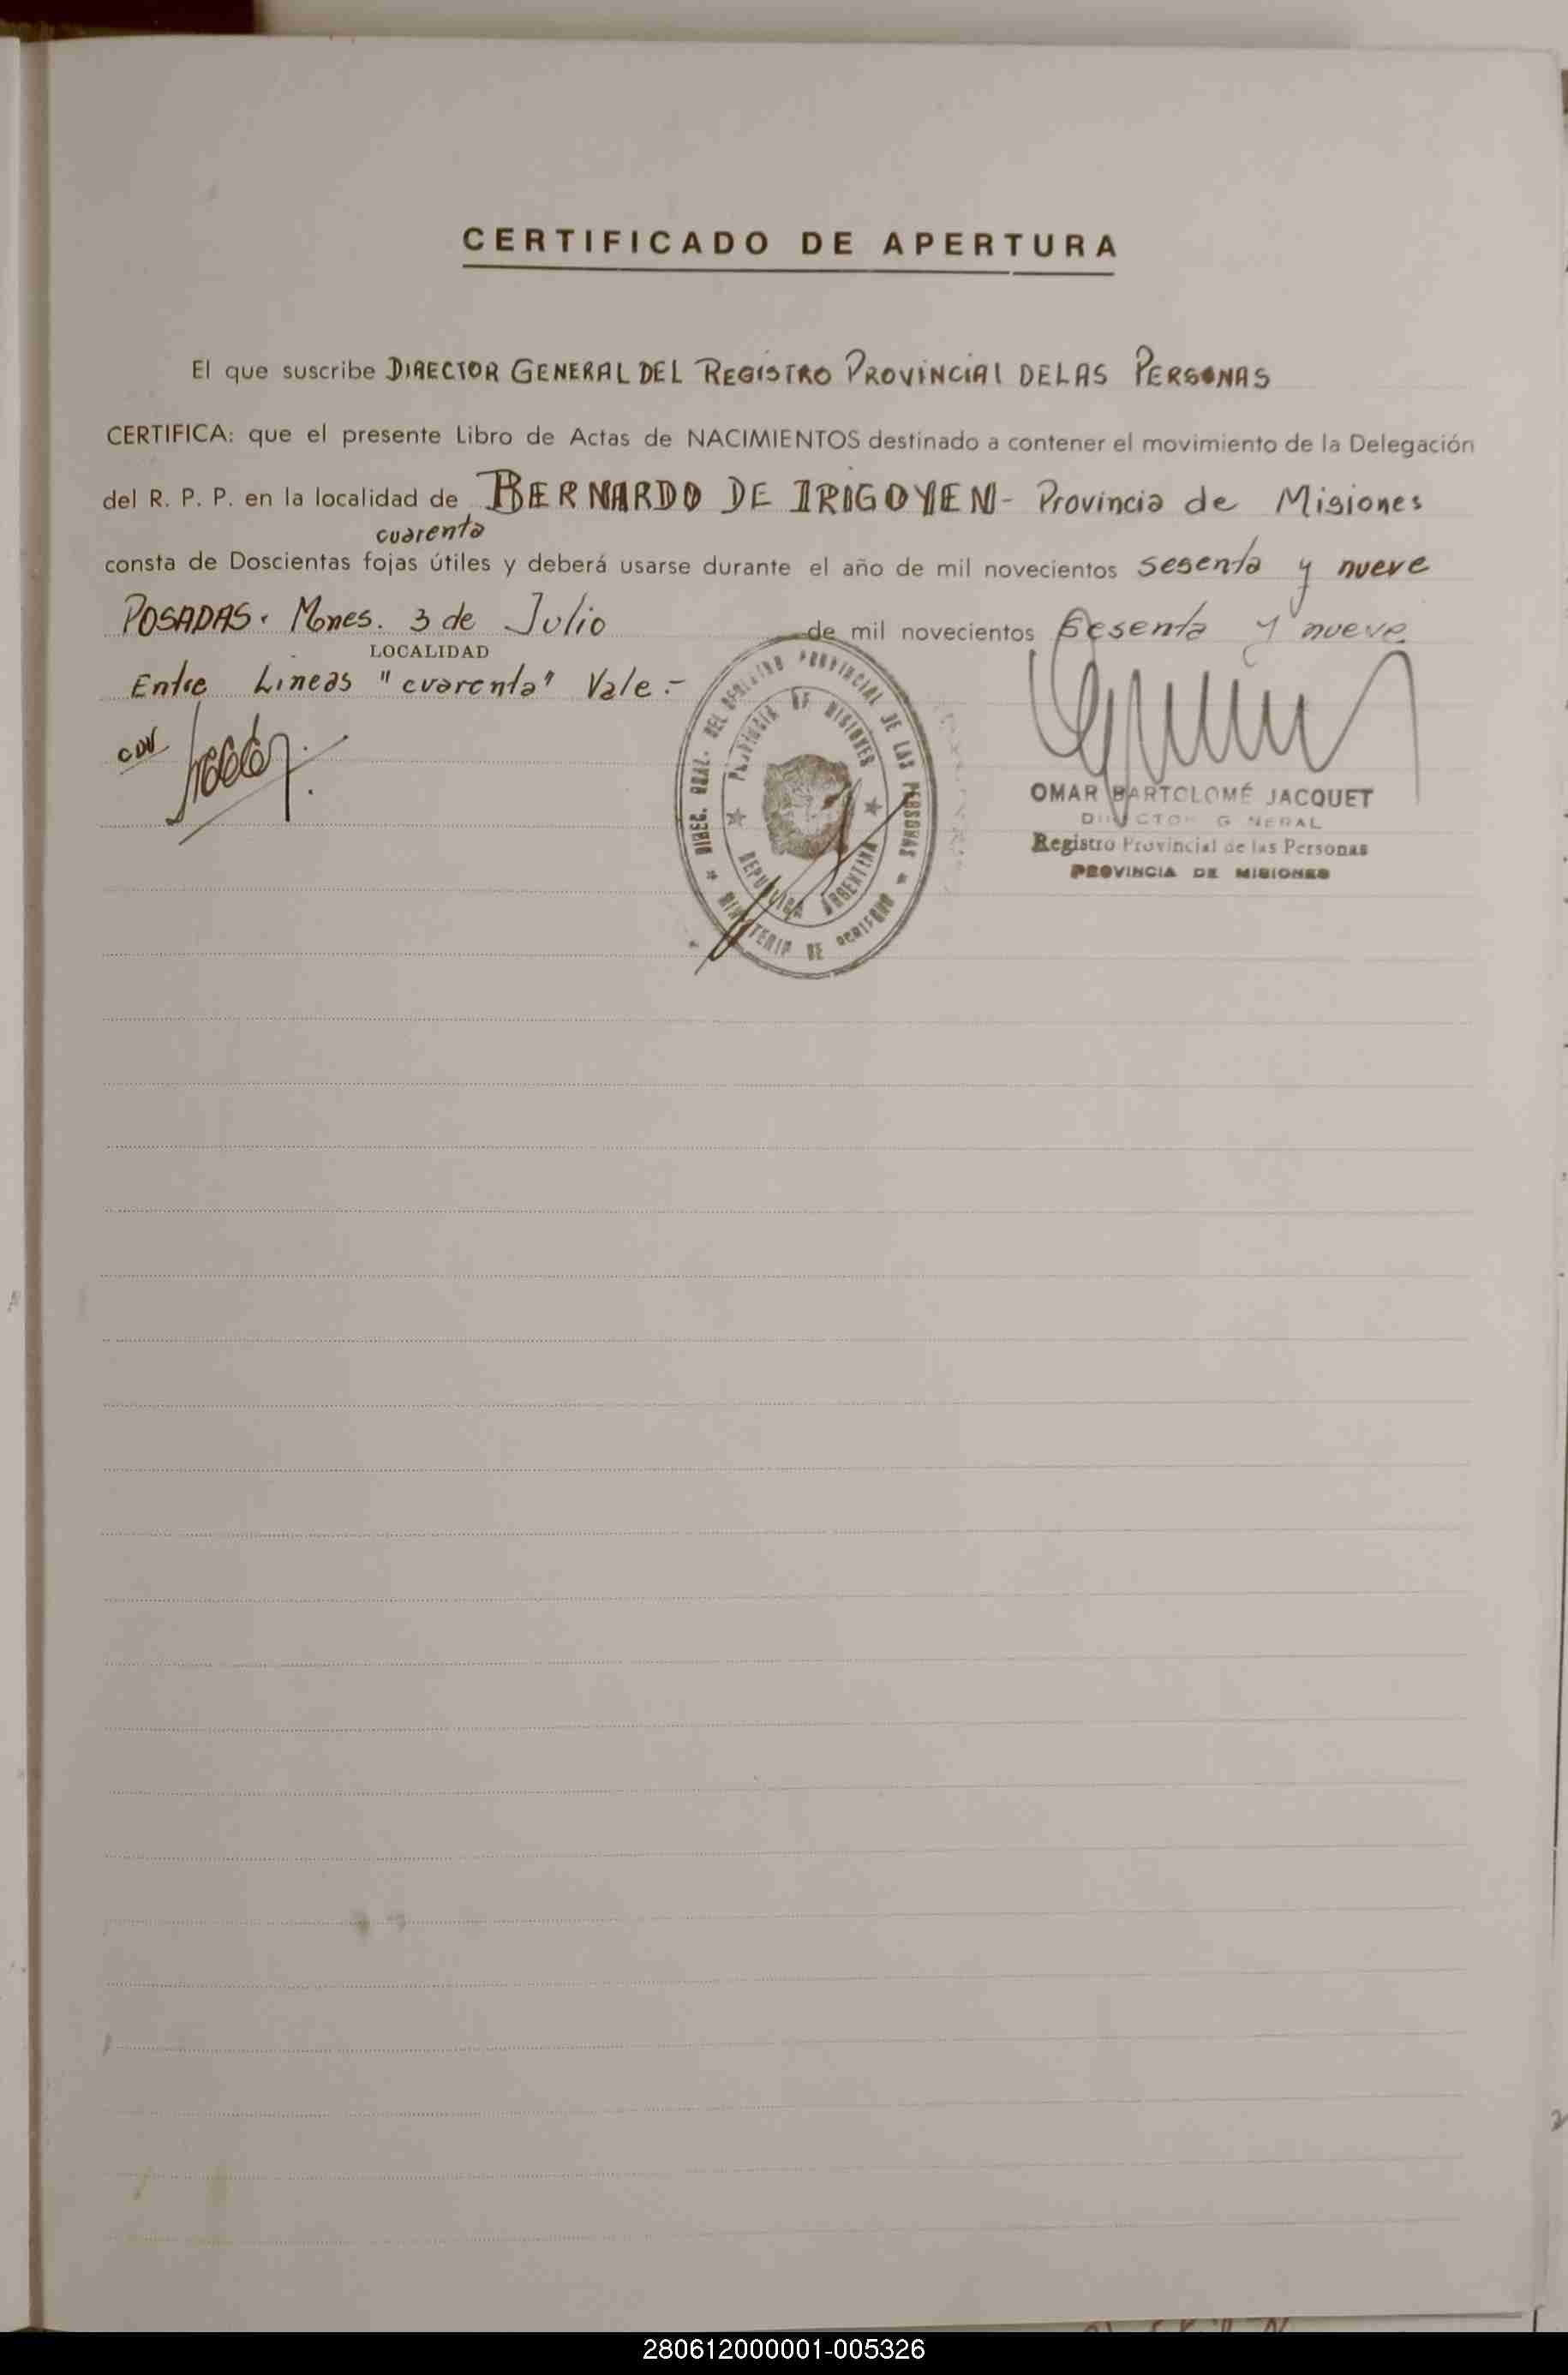 CERTIFICADO DE APERTURA
El que suscribe DIRECTOR GENERAL DEL REGISTRO PROVINCIAL DE LAS PERSONAS
CERTIFICA: que el presente Libro de Actas de NACIMIENTOS destinado a contener el movimiento de la Delegación
del R. P. P. en la localidad de BERNARDO DE IRIGOYEN - Provincia de Misiones
cuarenta
consta de Doscientas fojas útiles y deberá usarse durante el año de mil novecientos sesenta y nueve
POSADAS. Mnes. 3 de Julio de mil novecientos Sesenta y nueve
LOCALIDAD
Entre Lineas "cuarenta" Vale.-
DIREC. GRAL. DEL REGISTRO PROVINCIAL DE LAS PERSONAS
PROVINCIA DE MISIONES
REPUBLICA ARGENTINA
MINISTERIO DE GOBIERNO
OMAR BARTOLOMÉ JACQUET
DIRECTOR GENERAL
Registro Provincial de las Personas
PROVINCIA DE MISIONES
280612000001-005326